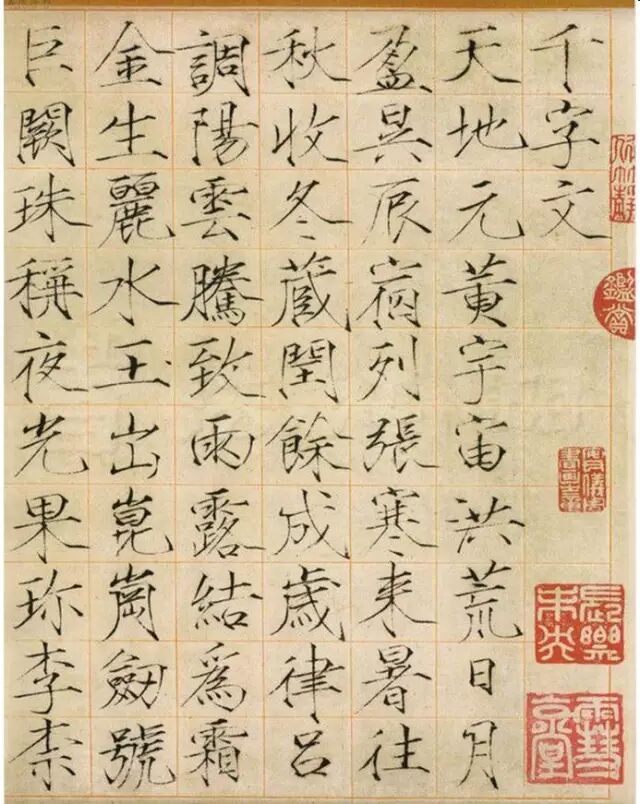 千字文
天地元黄宇宙洪荒日月
盈昃辰宿列張寒来暑往
秋收冬蔵閏餘成歲律呂
調陽雲騰致雨露結爲霜
金生麗水玉出崑崗劒號
巨闕珠稱夜光果珎李柰
鑑賞